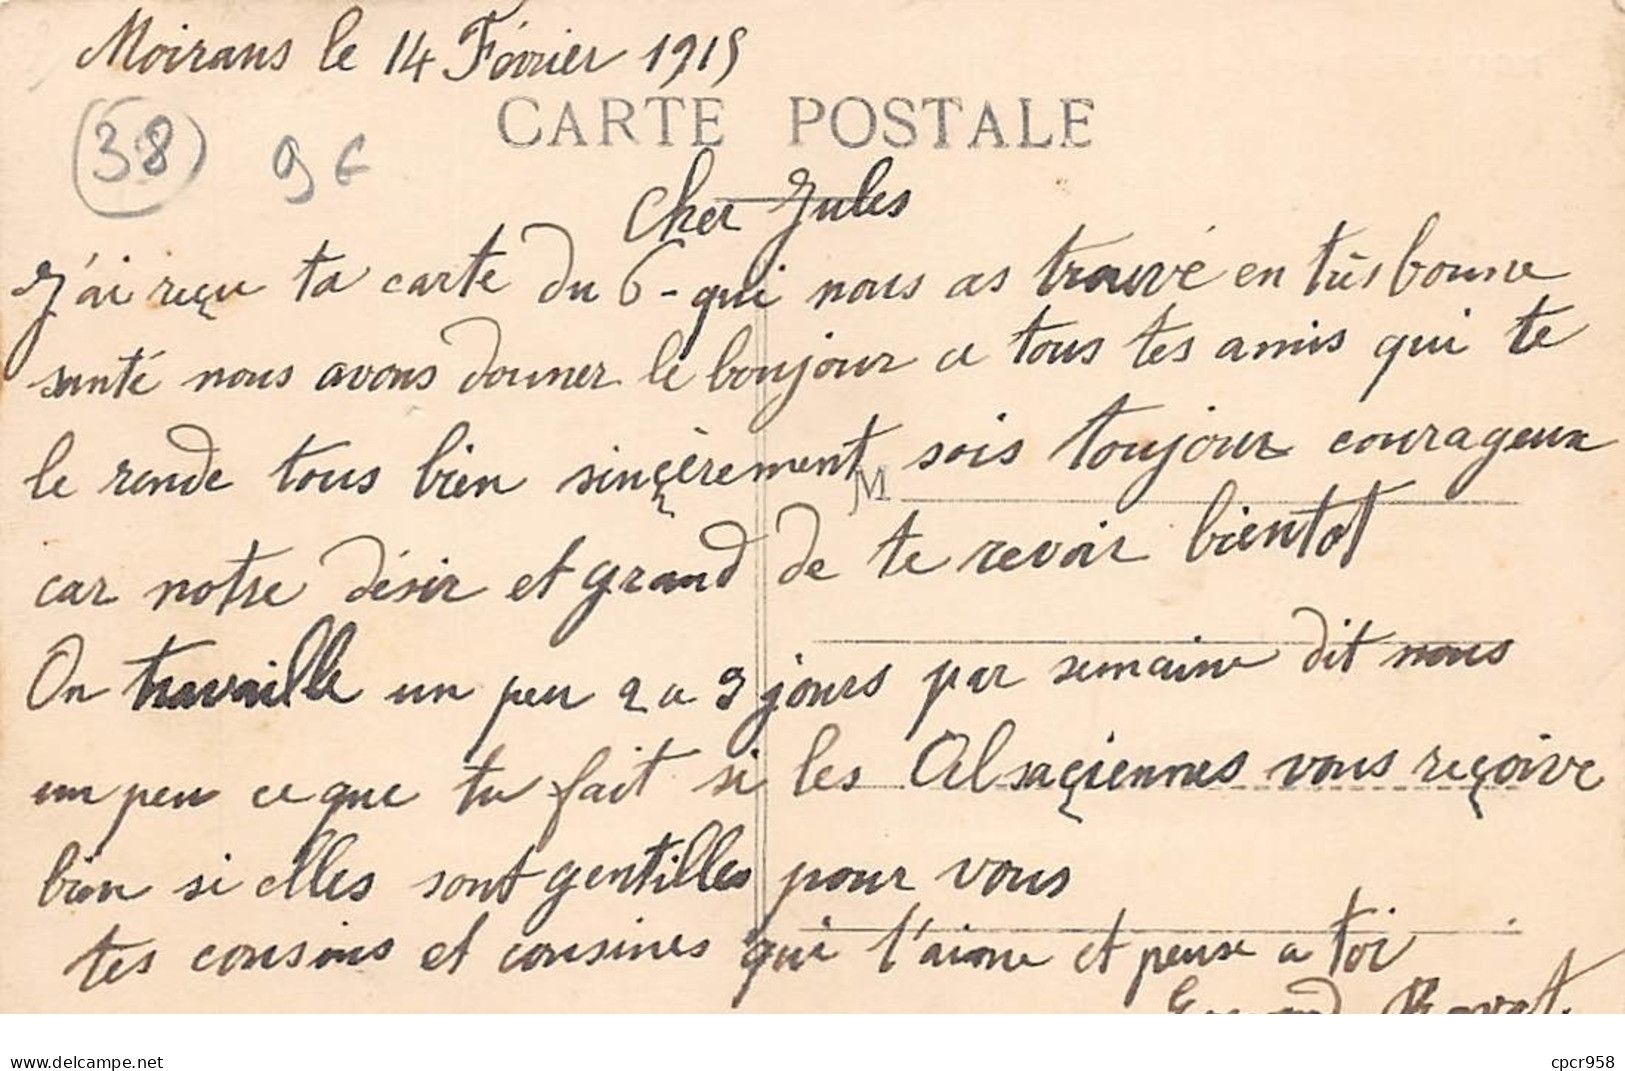 Moirans le 14 Février 1915
CARTE POSTALE
38 9€
Cher Jules
J'ai reçu ta carte du 6 - qui nous as trouvé en très bonne
santé nous avons donner le bonjour a tous tes amis qui te
le rende tous bien sinçèrement sois toujour courageux
M
car notre désir et grand de te revoir bientot
On travaille un peu 2 a 3 jours par semaine dit nous
un peu ce que tu fait si les Alsaçiennes vous reçoive
bien si elles sont gentilles pour vous
tes cousins et cousines qui t'aime et pense a toi
www.delcampe.net
cpcr958